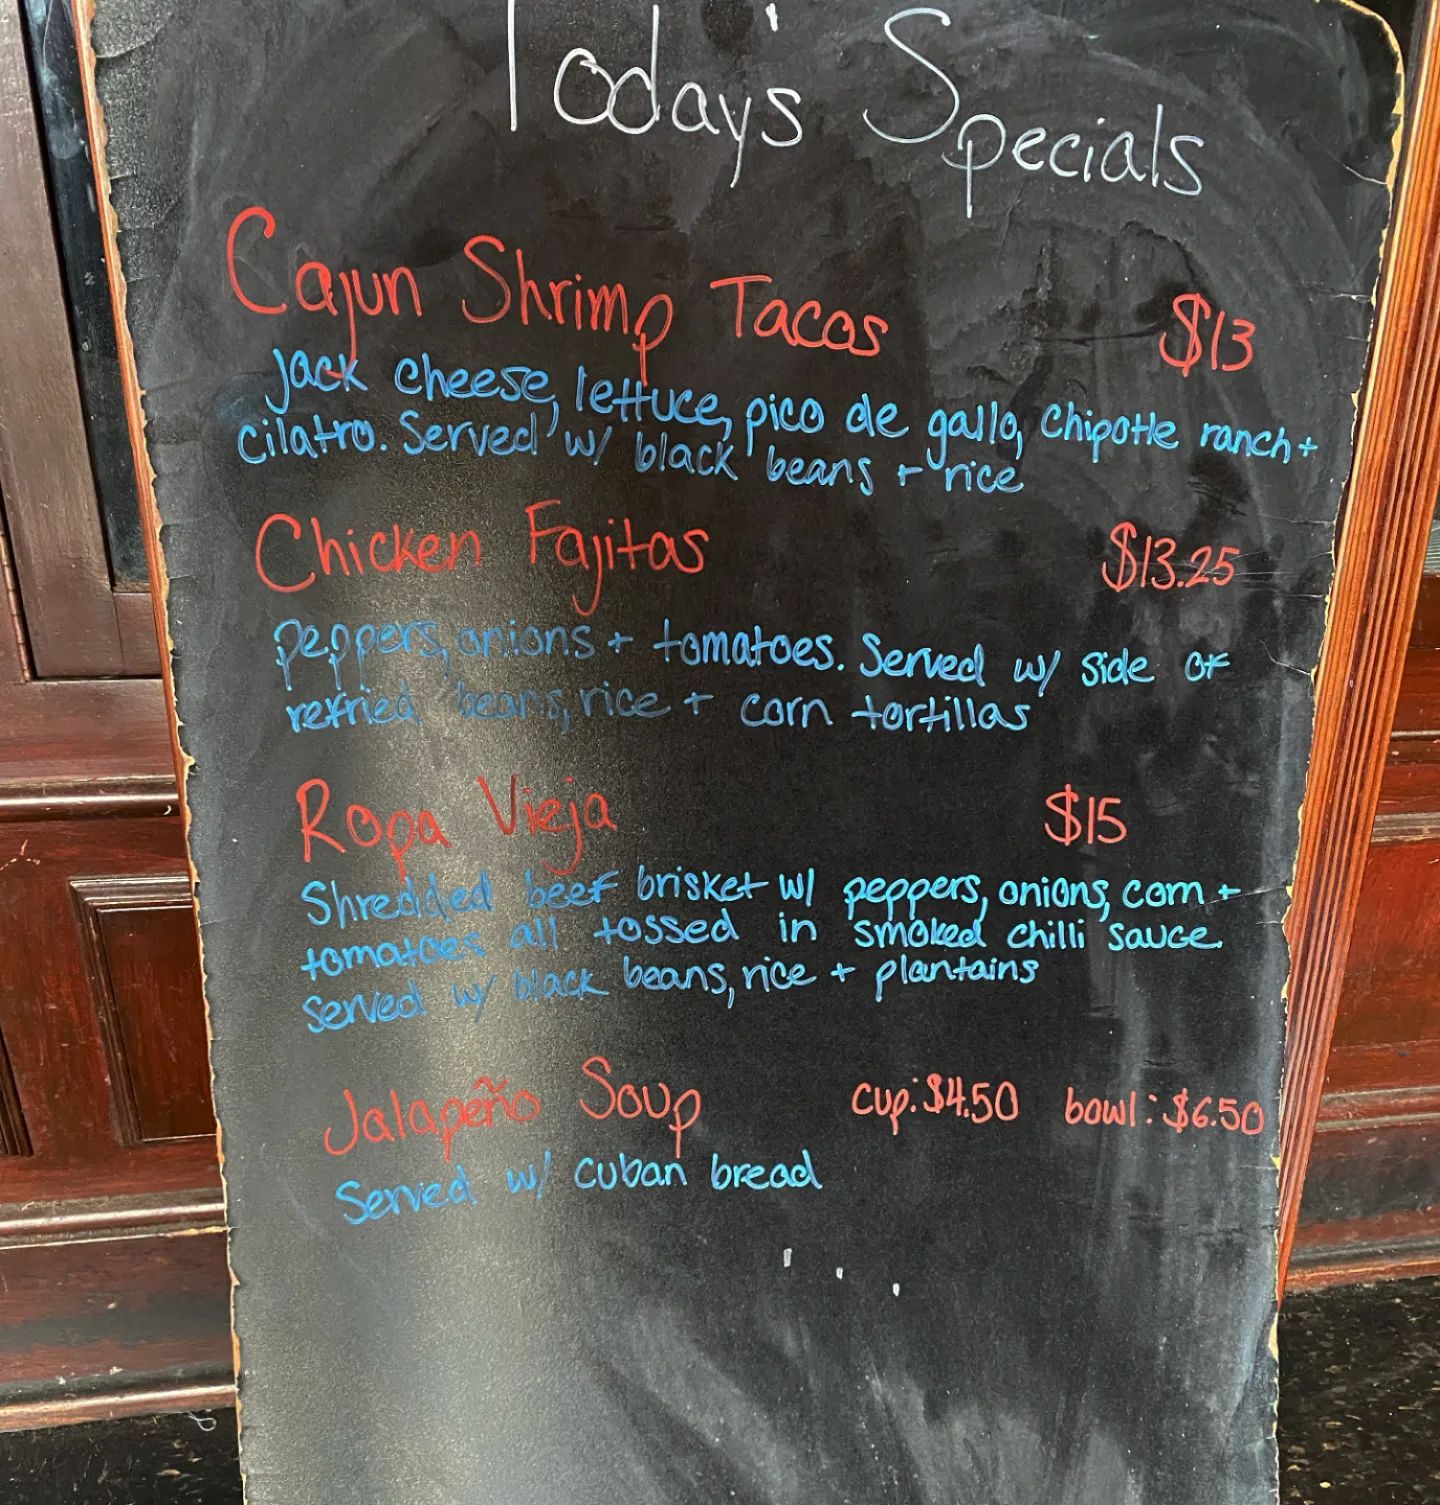 Today's Specials
Cajun Shrimp Tacos $13
Jack cheese, lettuce, pico de gallo, chipotle ranch +
cilatro. Served w/ black beans + rice
Chicken Fajitas $13.25
peppers, onions + tomatoes. Served w/ side of
refried beans, rice + corn tortillas
Ropa Vieja $15
Shredded beef brisket w/ peppers, onions, corn +
tomatoes all tossed in smoked chilli sauce.
Served w/ black beans, rice + plantains
Jalapeño Soup cup: $4.50 bowl: $6.50
Served w/ cuban bread